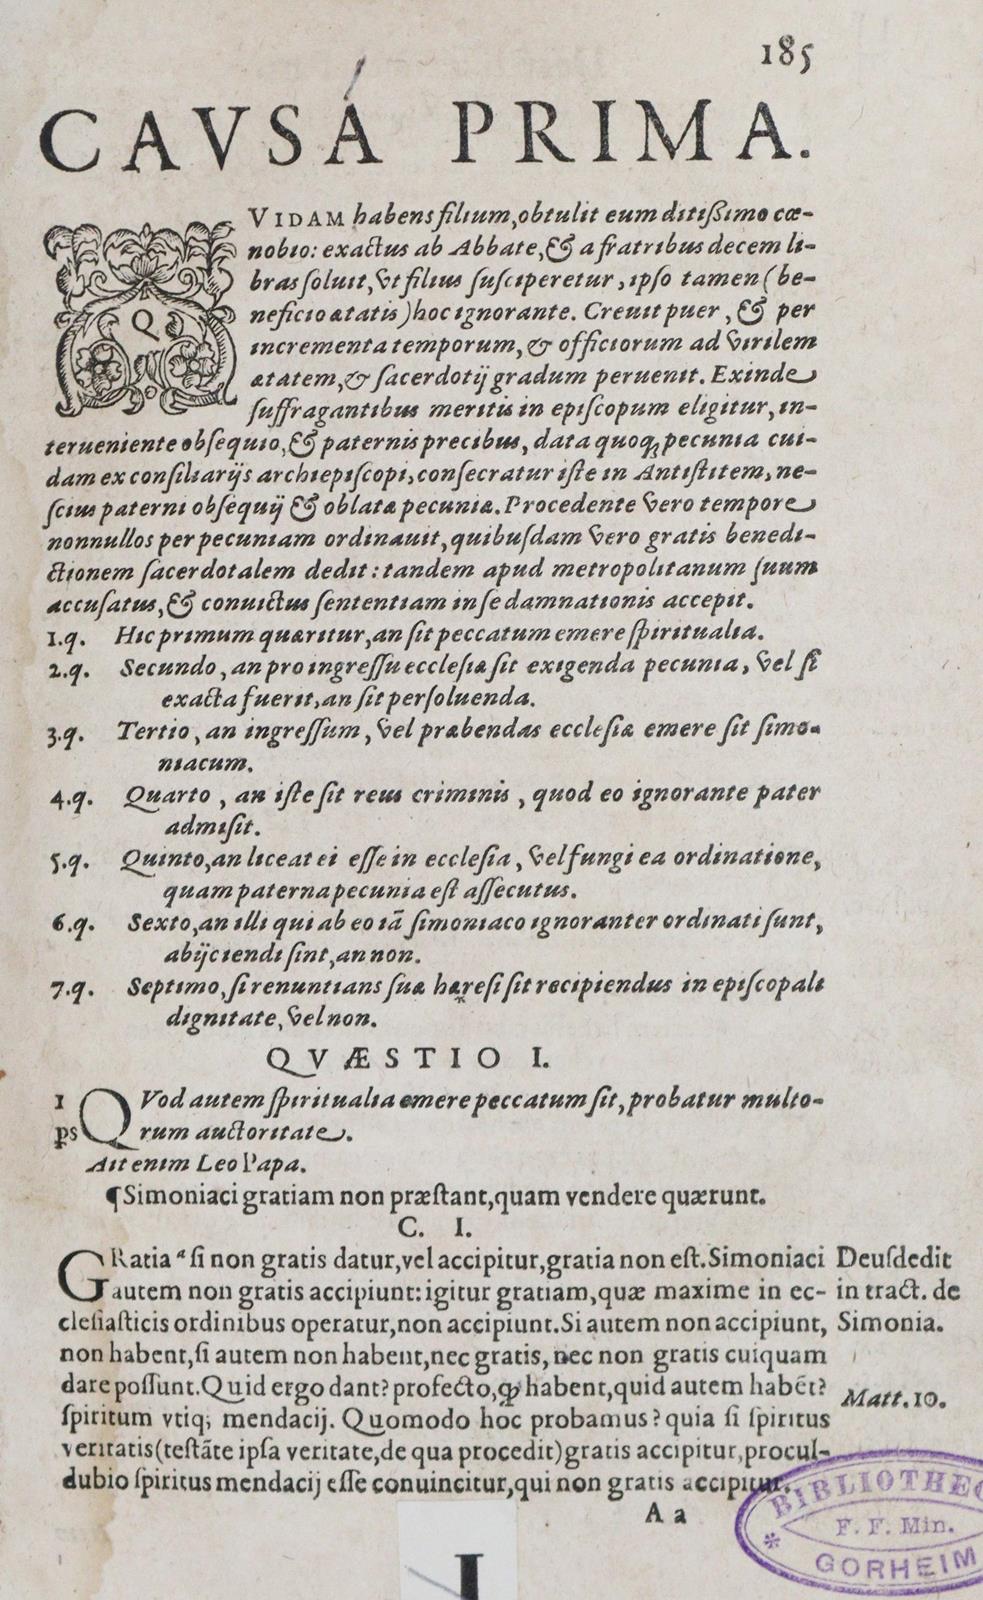 185
CAVSA PRIMA.
QVIDAM habens filium, obtulit eum ditißimo cœ-
nobio: exactus ab Abbate, & a fratribus decem li-
bras soluit, vt filius susciperetur, ipso tamen (be-
neficio ætatis) hoc ignorante. Creuit puer, & per
incrementa temporum, & officiorum ad virilem
ætatem, & sacerdotij gradum peruenit. Exinde
suffragantibus meritis in episcopum eligitur, in-
terueniente obsequio, & paternis precibus, data quoq; pecunia cui-
dam ex consiliarijs archiepiscopi, consecratur iste in Antistitem, ne-
scius paterni obsequij & oblatæ pecuniæ. Procedente vero tempore
nonnullos per pecuniam ordinauit, quibusdam vero gratis benedi-
ctionem sacerdotalem dedit: tandem apud metropolitanum suum
accusatus, & conuictus sententiam in se damnationis accepit.
1.q. Hic primum quæritur, an sit peccatum emere spiritualia.
2.q. Secundo, an pro ingressu ecclesiæ sit exigenda pecunia, vel si
exacta fuerit, an sit persoluenda.
3.q. Tertio, an ingressum, vel præbendas ecclesiæ emere sit simo-
niacum.
4.q. Quarto, an iste sit reus criminis, quod eo ignorante pater
admisit.
5.q. Quinto, an liceat ei esse in ecclesia, vel fungi ea ordinatione,
quam paterna pecunia est assecutus.
6.q. Sexto, an illi qui ab eo iã simoniaco ignoranter ordinati sunt,
abijciendi sint, an non.
7.q. Septimo, si renuntians suæ hæresi sit recipiendus in episcopali
dignitate, vel non.
QVÆSTIO I.
1 QVod autem spiritualia emere peccatum sit, probatur multo-
ꝑs rum auctoritate.
Ait enim Leo Papa.
¶Simoniaci gratiam non præstant, quam vendere quærunt.
C. I.
GRatia ª si non gratis datur, vel accipitur, gratia non est. Simoniaci
autem non gratis accipiunt: igitur gratiam, quæ maxime in ec-
clesiasticis ordinibus operatur, non accipiunt. Si autem non accipiunt,
non habent, si autem non habent, nec gratis, nec non gratis cuiquam
dare possunt. Quid ergo dant? profecto, ꝙ habent, quid autem habẽt?
spiritum vtiq; mendacij. Quomodo hoc probamus? quia si spiritus
veritatis (testãte ipsa veritate, de qua procedit) gratis accipitur, procul-
dubio spiritus mendacij esse conuincitur, qui non gratis accipitur.
Deusdedit
in tract. de
Simonia.
Matt. 10.
A a
BIBLIOTHEC
F. F. Min.
GORHEIM